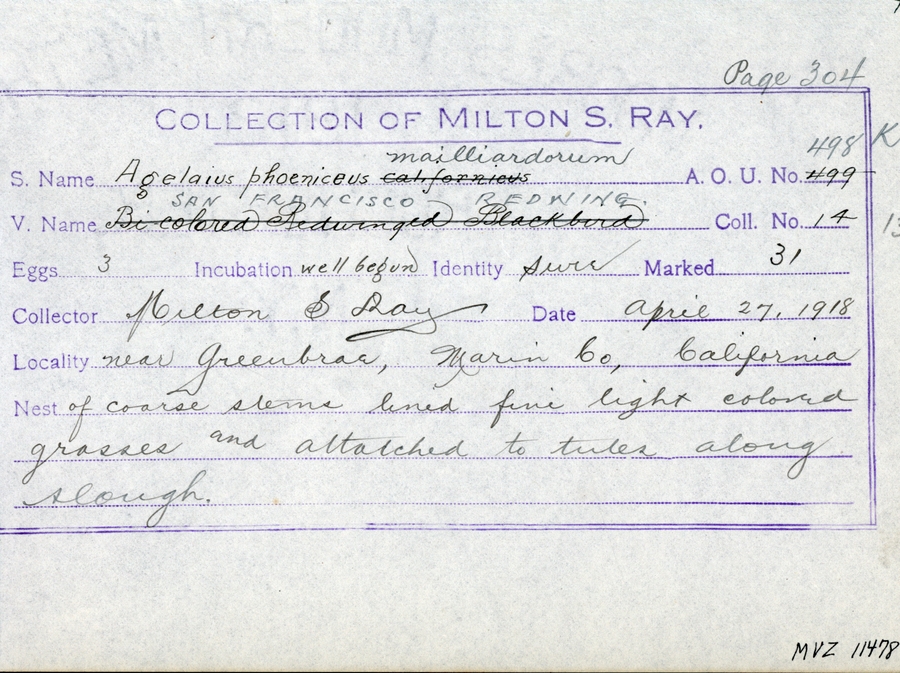 Page 304
COLLECTION OF MILTON S. RAY.
mailliardorum 498 K
S. Name Agelaius phoeniceus californicus A. O. U. No. 499
SAN FRANCISCO REDWING.
V. Name Bi-colored Redwinged Blackbird Coll. No. 14 13
Eggs 3 Incubation well begun Identity sure Marked 31
Collector Milton S Ray Date April 27, 1918
Locality near Greenbrae, Marin Co, California
Nest of coarse stems lined fine light colored
grasses and attatched to tules along
slough.
MVZ 11478